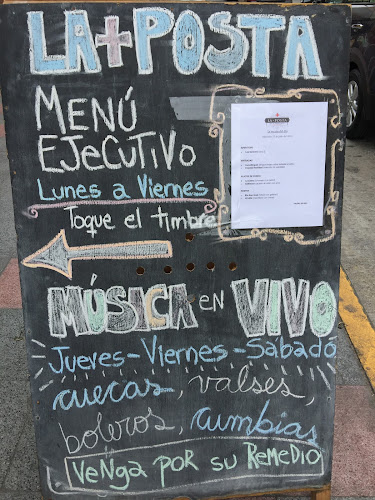 LA POSTA
MENÚ
EJECUTIVO
Lunes a Viernes
Toque el timbre
MÚSICA EN VIVO
Jueves - Viernes - Sábado
cuecas, valses,
boleros, cumbias
VENGA POR SU REMEDIO